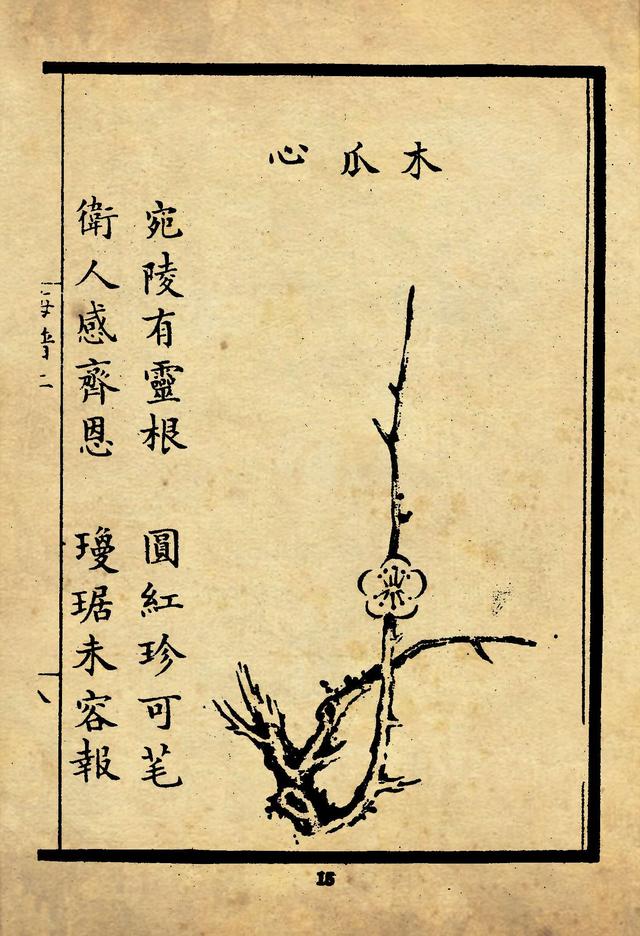 木瓜心
宛陵有靈根 圓紅珍可芼
衛人感齊恩 瓊琚未容報
15